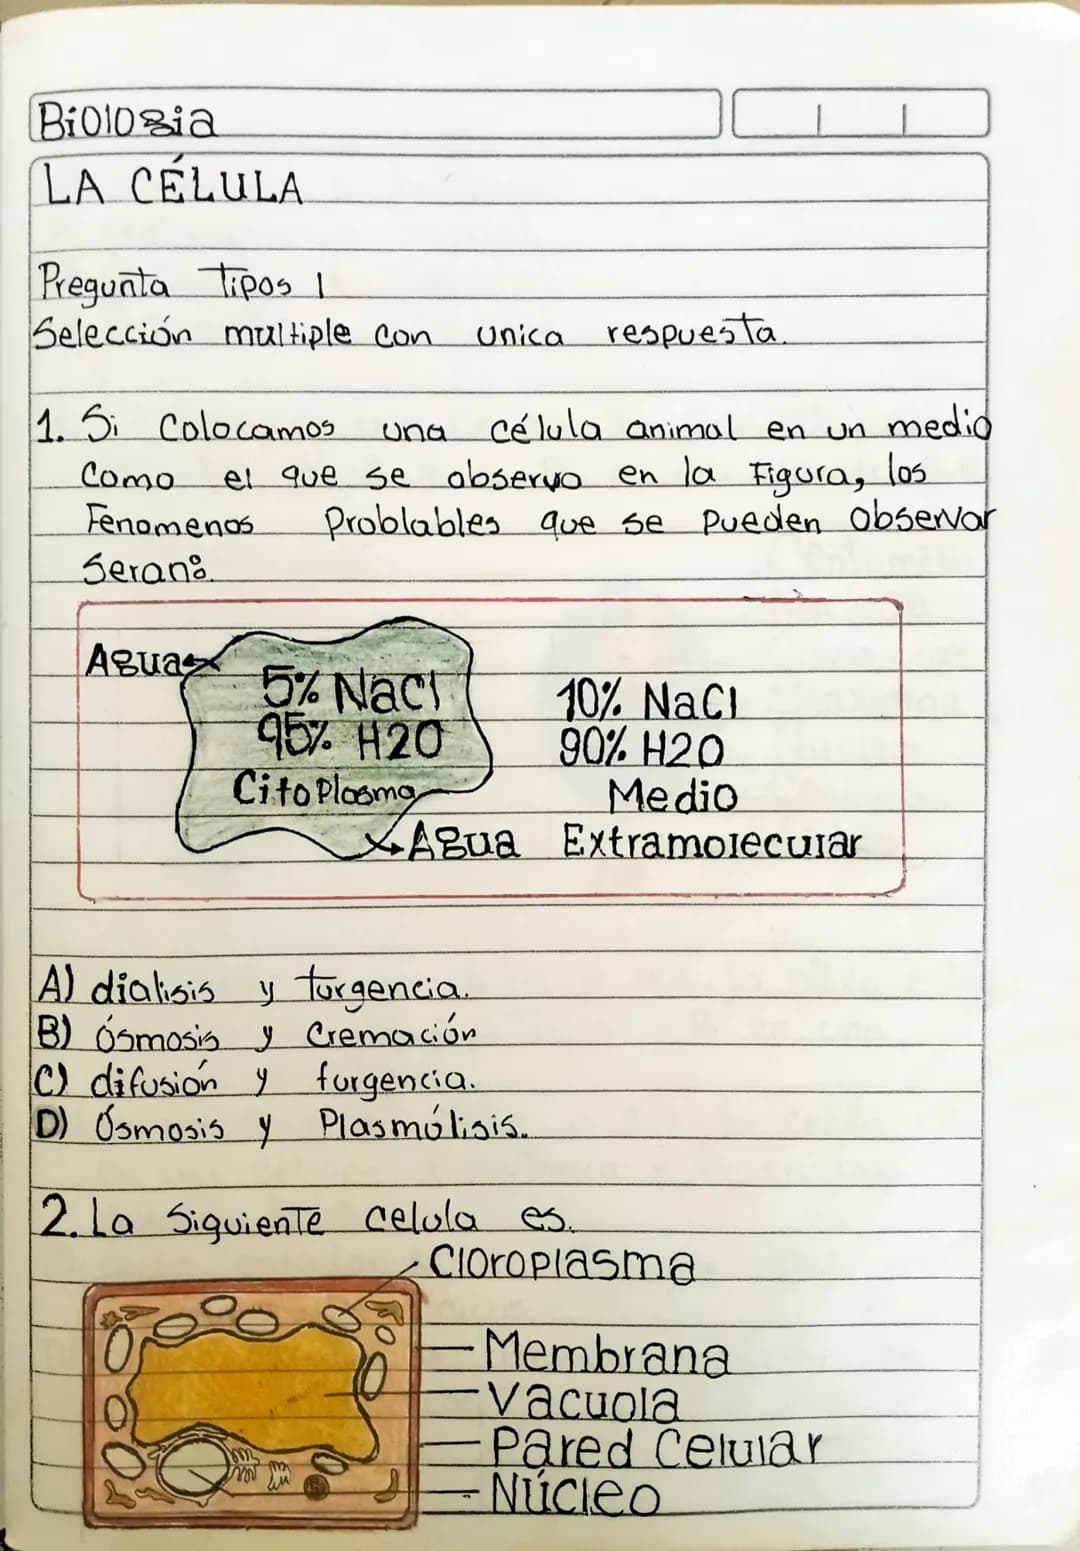 Biologia
LA CÉLULA
Pregunta Tipos 1
Selección multiple con unica respuesta.
1. Si Colocamos una célula animal en un medio
Como el que se observo en la Figura, los
Fenomenos Problables que se Pueden Observar
Seran:
Agua
5% NaCl
95% H2O
Citoplasma
Agua
10% NaCl
90% H2O
Medio
Extramolecular
A) dialisis y turgencia.
B) Ósmosis y Cremación
C) difusión y furgencia.
D) Ósmosis y Plasmólisis.
2. La Siguiente celula es.
Cloroplasma
Membrana
Vacuola
Pared Celular
Núcleo